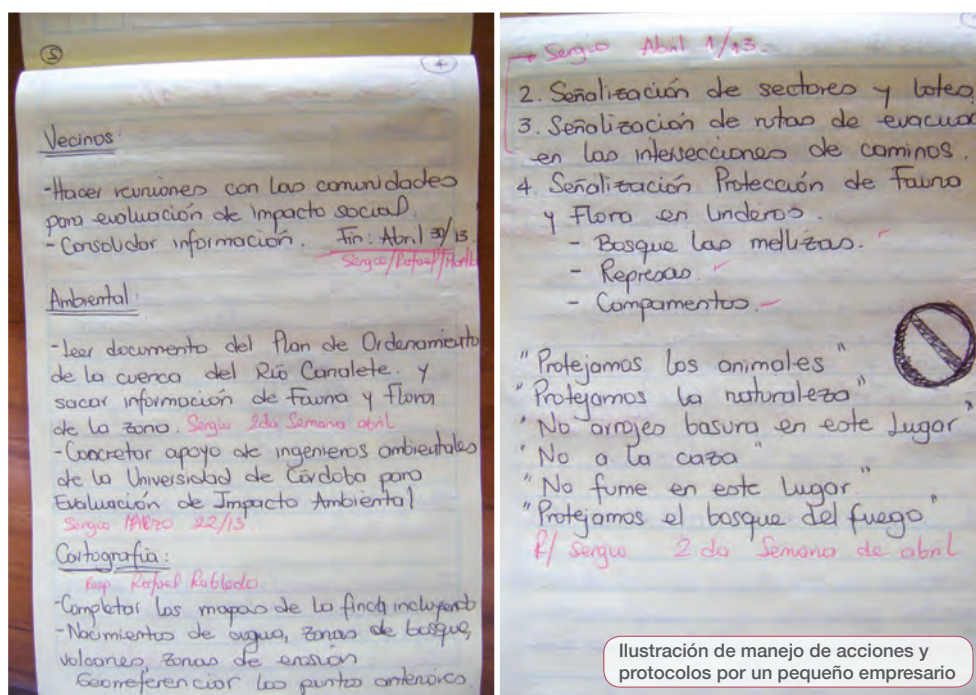 5
4
Vecinos:
-Hacer reuniones con las comunidades
para evaluación de impacto social.
- Consolidar información. Fin: Abril 30/13.
Sergio/Rafael/
Ambiental:
-Leer documento del Plan de Ordenamiento
de la cuenca del Río Canalete. y
sacar información de Fauna y Flora
de la zona. Sergio 2da Semana abril
-Concretar apoyo de ingenieros ambientales
de la Universidad de Córdoba para
Evaluación de Impacto Ambiental
Sergio MARZO 22/13.
Cartografía:
Resp Rafael Robledo.
-Completar los mapas de la finca incluyendo
-Nacimientos de agua, zonas de bosque,
volcanes, zonas de erosión
Georeferenciar los puntos anteriores.
Sergio Abril 1/13.
2. Señalización de sectores y lotes
3. Señalización de rutas de evacua
en las intersecciones de caminos.
4. Señalización Protección de Fauna
y Flora en linderos.
- Bosque las mellizas.
- Represas.
- Campamentos.
"Protejamos los animales"
"Protejamos la naturaleza"
"No arrojes basura en este lugar"
"No a la caza"
"No fume en este lugar."
"Protejamos el bosque del fuego"
R/ Sergio 2da Semana de abril
Ilustración de manejo de acciones y
protocolos por un pequeño empresario